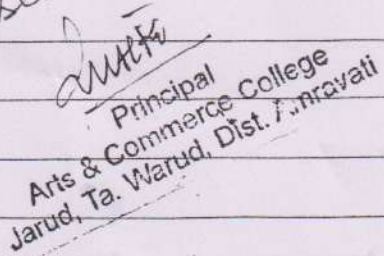 Principal
Arts & Commerce College
Jarud, Ta. Warud, Dist. Amravati